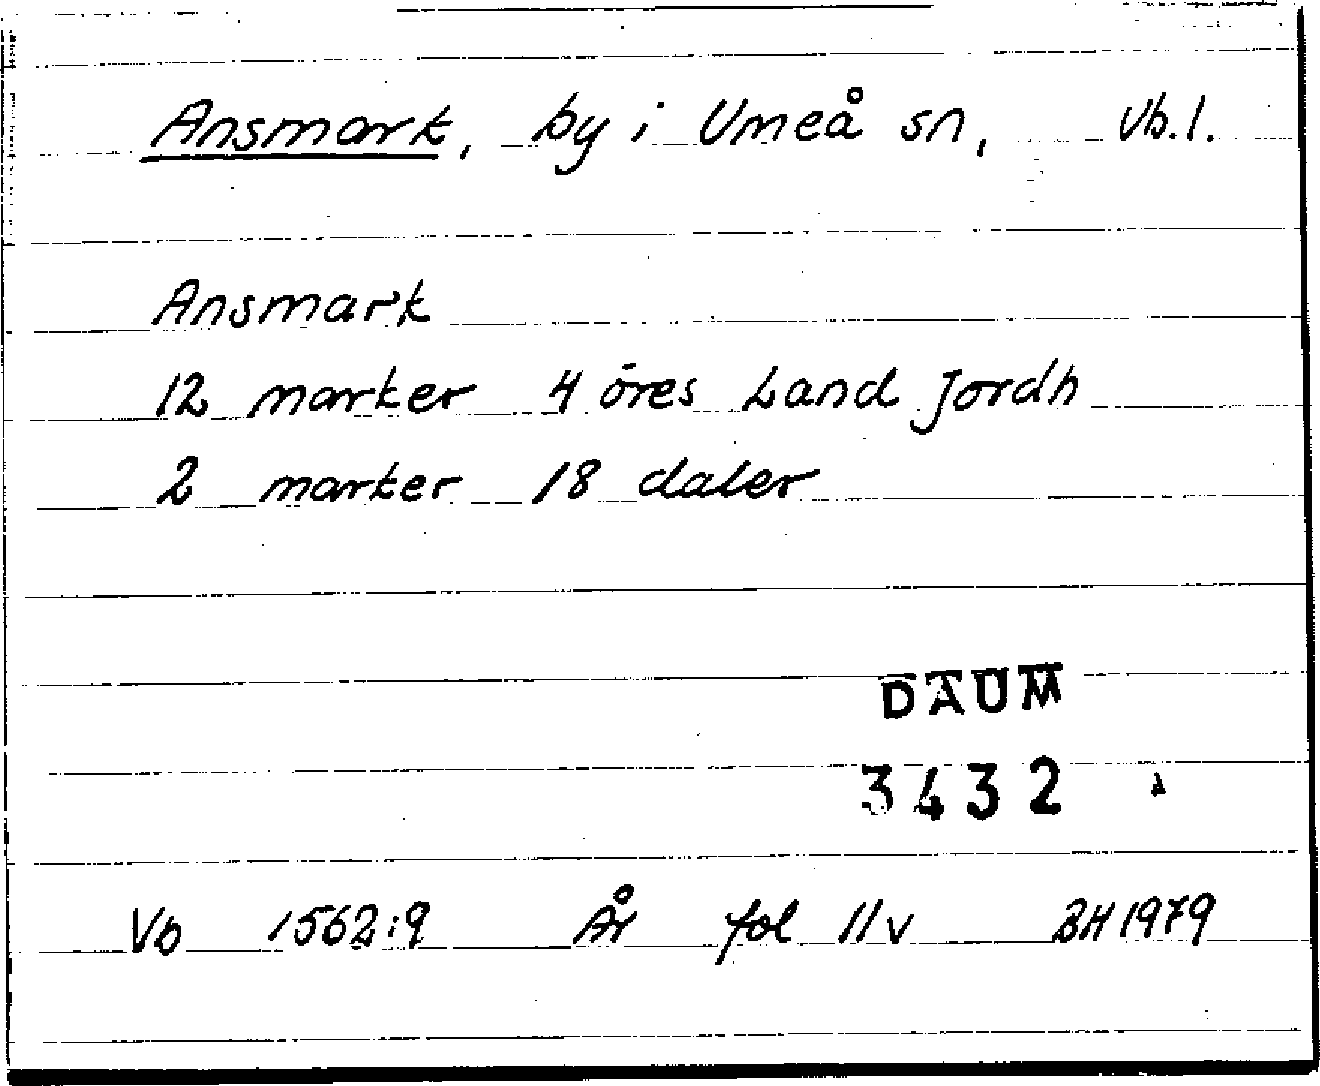 Ansmark, by i Umeå sn, Vb.l.
Ansmark
12 marker 4 öres Land Jordh
2 marker 18 daler
DAUM
3432
Vb 1562:9 År fol 11v BH 1979